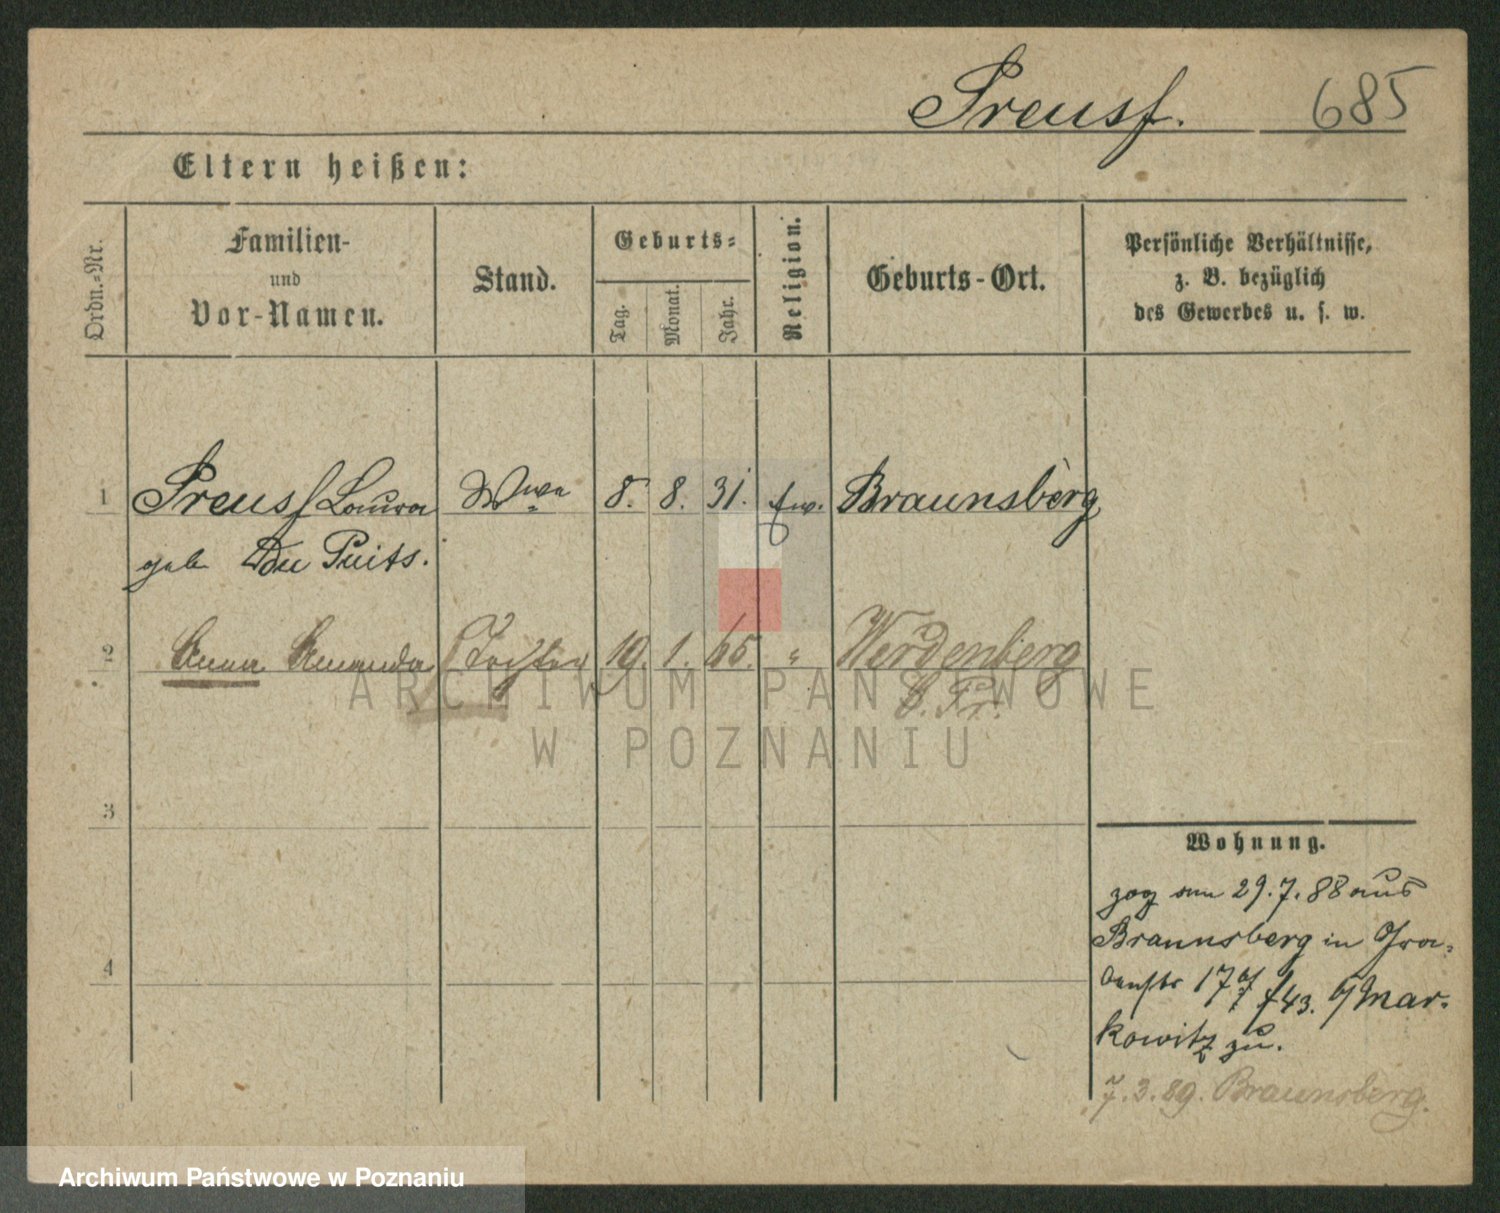 Preuss. 685
Eltern heißen:
Ordn.-Nr.
Familien-
und
Vor-Namen.
Stand.
Geburts-
Tag.
Monat.
Jahr.
Religion.
Geburts-Ort.
Persönliche Verhältnisse,
z. B. bezüglich
des Gewerbes u. s. w.
1 Preuss Laura Wwe 8. 8. 31. ev. Braunsberg
geb Du Puits.
2 Anna Amanda Tochter 19. 1. 65. " Werdenberg
O. Pr.
ARCHIWUM PAŃSTWOWE
W POZNANIU
3
Wohnung.
zog am 29.7.88 aus
Braunsberg in Gra-
benstr 17 43. b/ Mar-
kowitz zu.
4
7.3.89. Braunsberg.
Archiwum Państwowe w Poznaniu